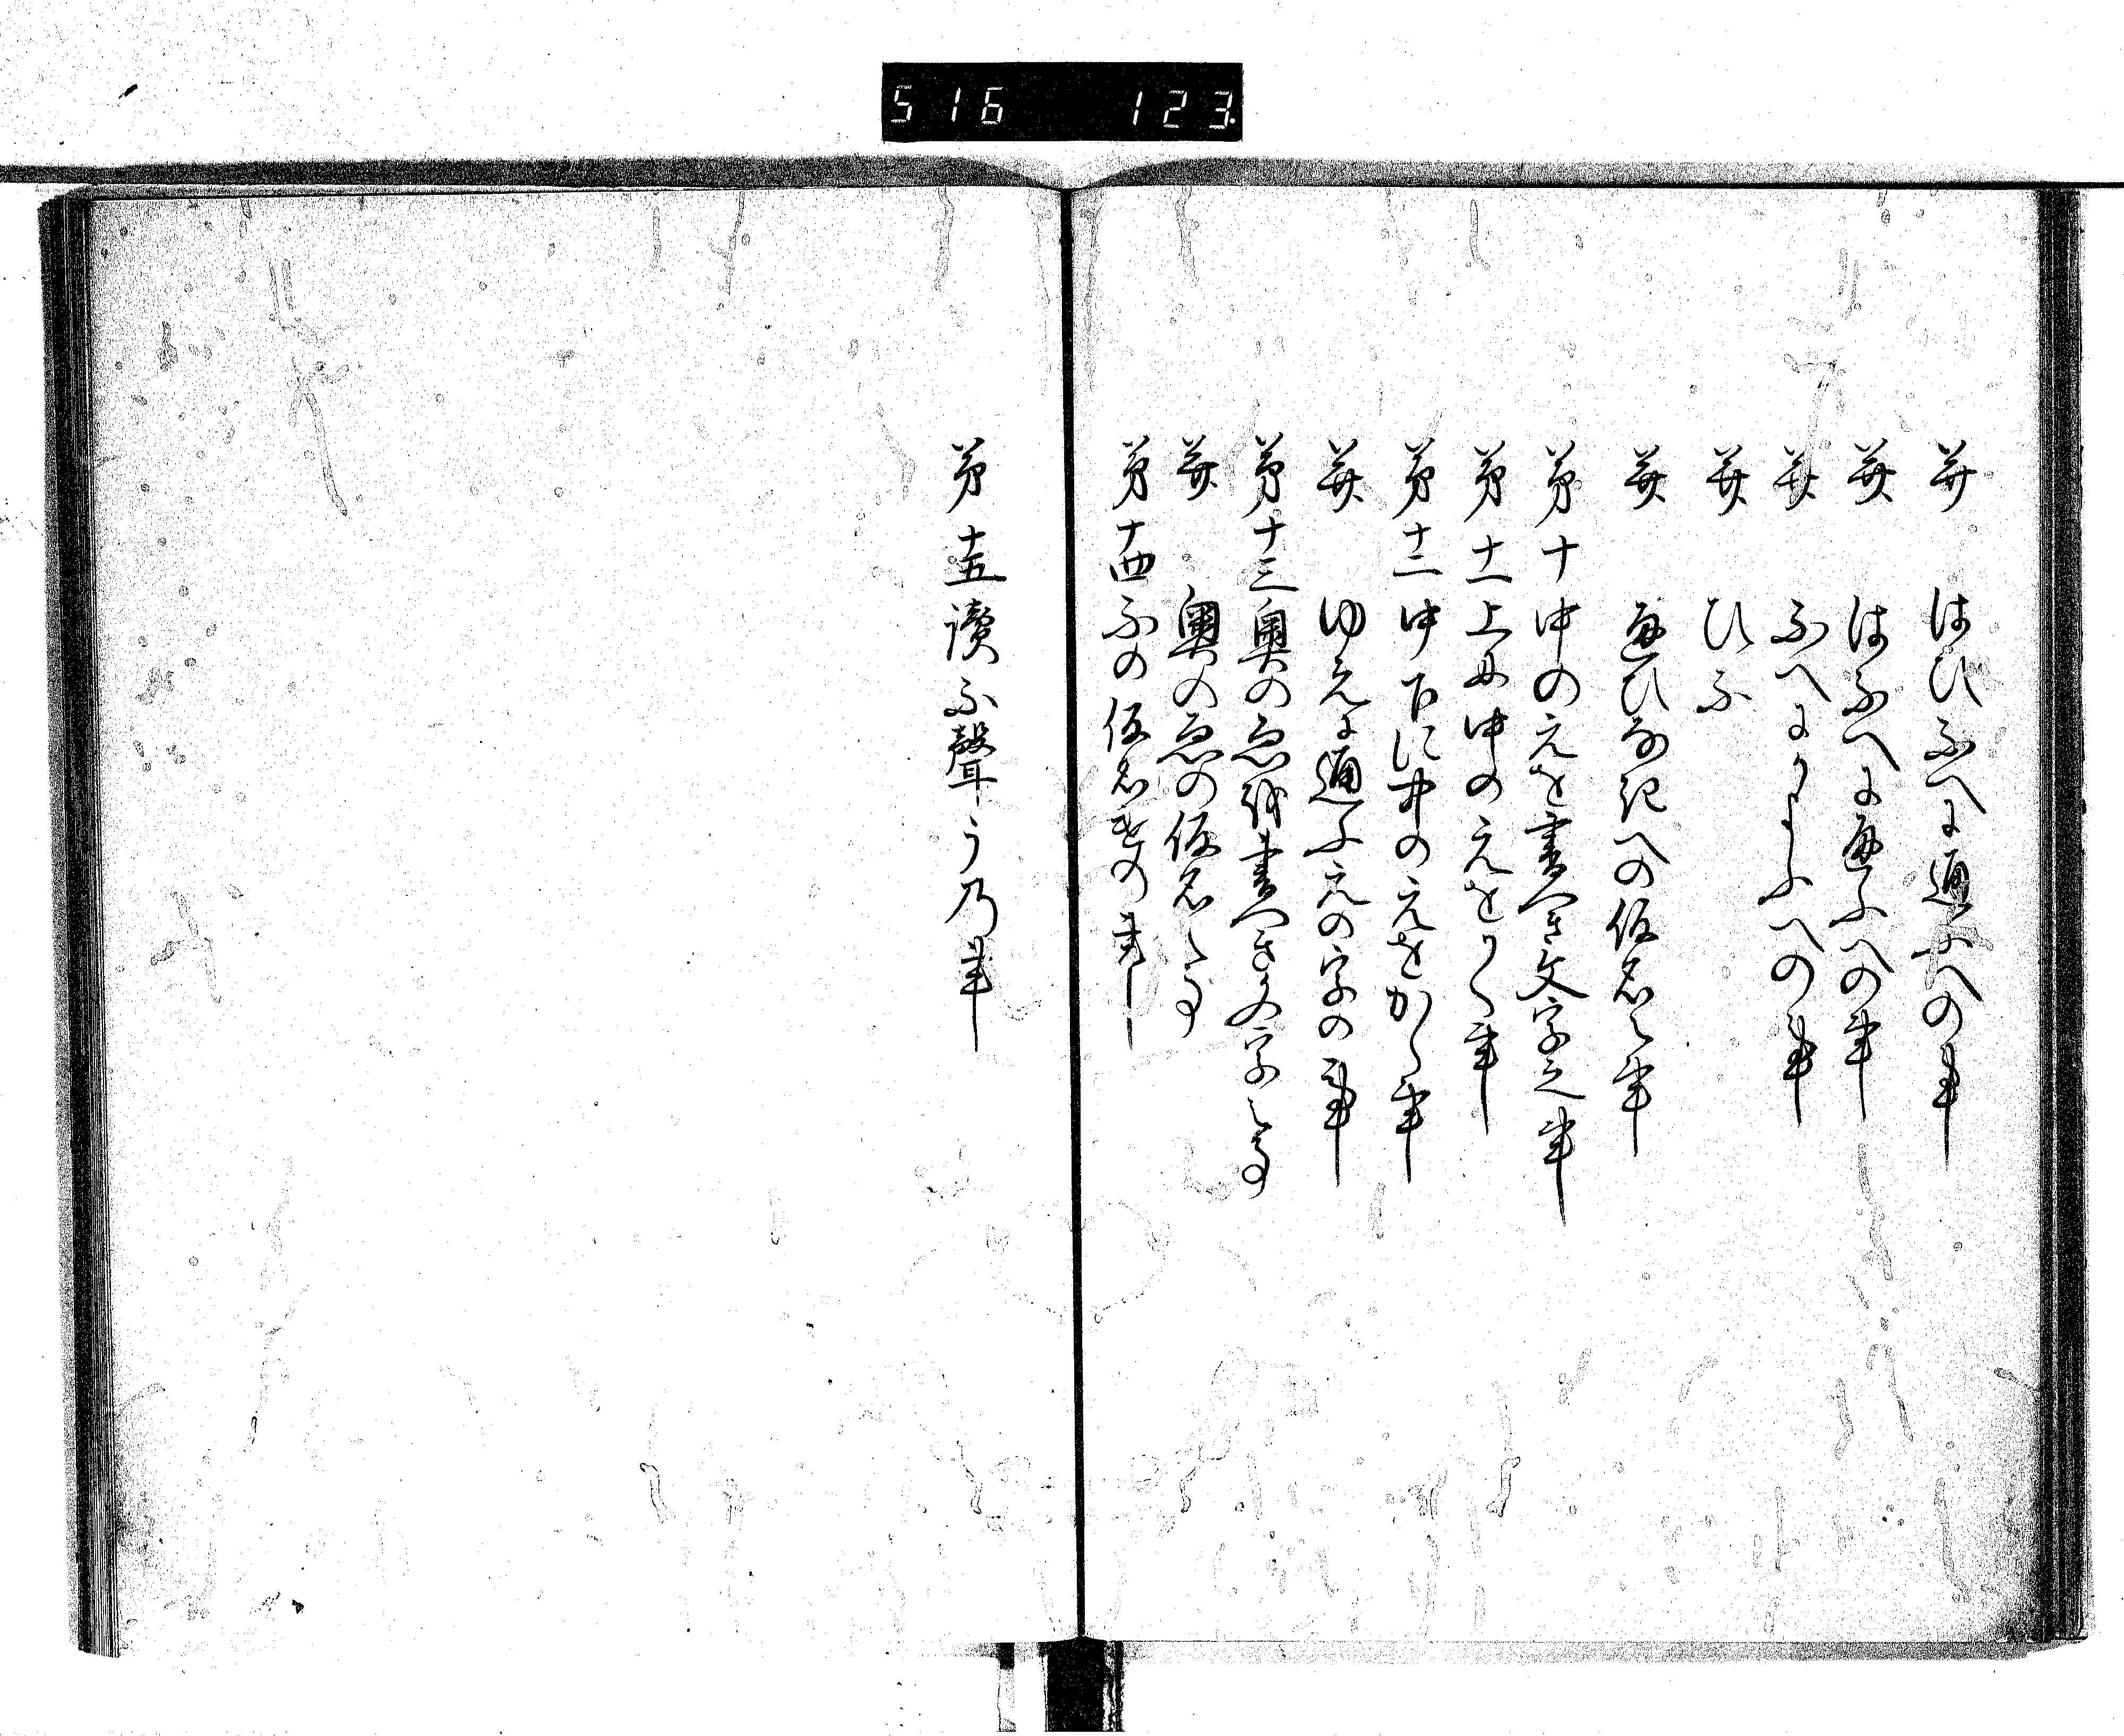 516 123
并 はひふへに通ふへの事
并 はふへに通ふへの事
并 ふへにかよふへの事
并 ひふ
并 通ひなきへの仮名之事
第十 中のえを書へき文字之事
第十一 上に中のえをかく事
第十二 中下に中のえをかく事
并 ゆえに通ふえの字の事
第十三 奥のゑを書へき文字之事
并 奥のゑの仮名之事
第十四 ふの仮名の事
第十五 讀ふ聲う乃事